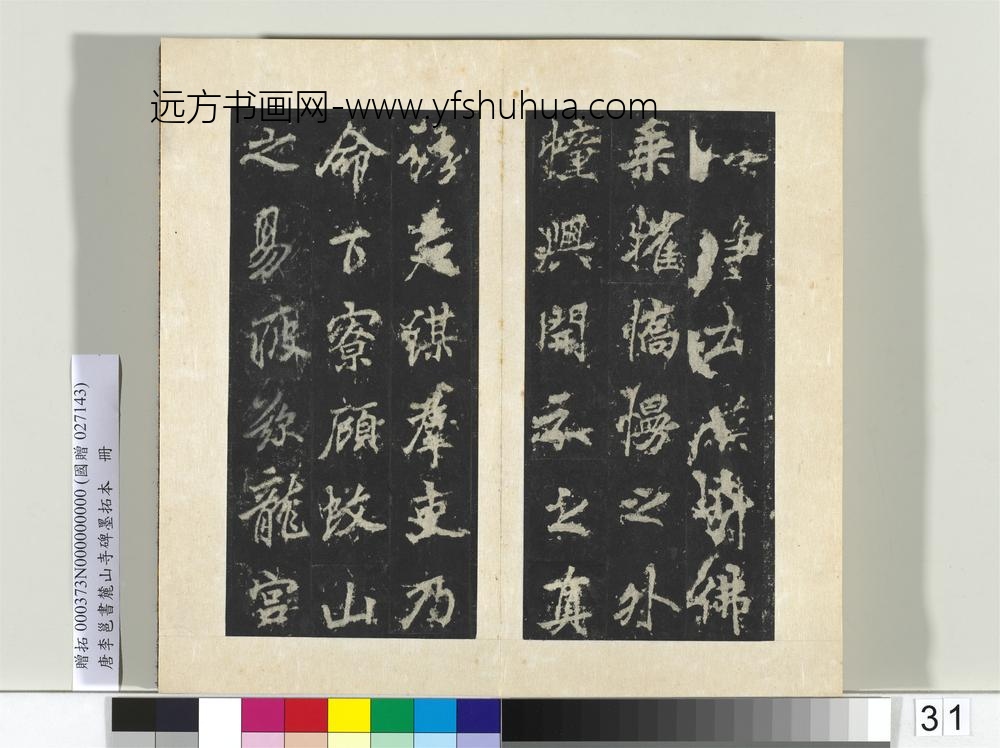 远方书画网-www.yfshuhua.com
佛
乘摧憍慢之外
幢興開示之真
龍走謀羣吏乃
命下寮顧蚊山
之易疲敘龍宮
贈拓 000373N000000000 (國贈 027143)
唐李邕書麓山寺碑墨拓本 冊
31